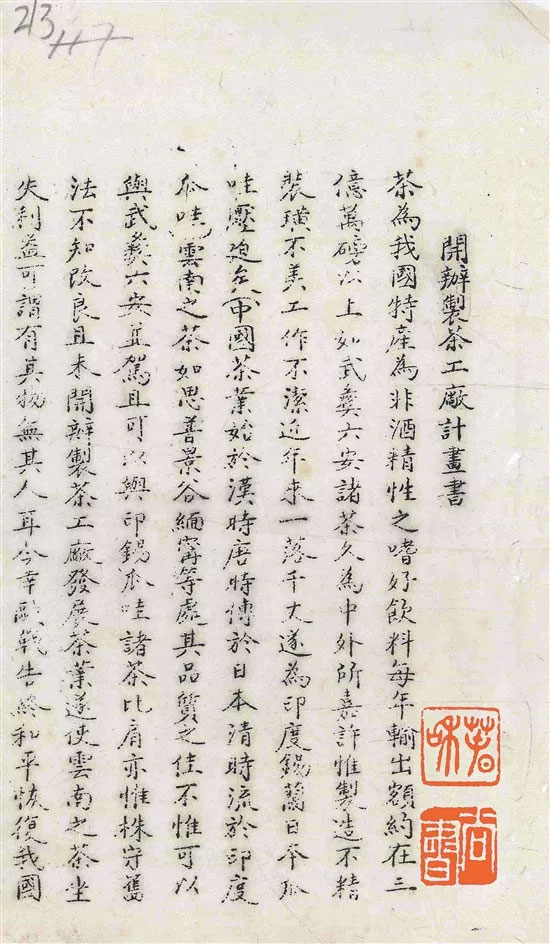 213
開辦製茶工廠計畫書
茶為我國特產為非酒精性之嗜好飲料每年輸出額約在三
億萬磅以上如武彝六安諸茶久為中外所嘉許惟製造不精
裝璜不美工作不潔近年來一落千丈遂為印度錫蘭日本瓜
哇壓迫矣中國茶業始於漢時唐時傳於日本清時流於印度
瓜哇雲南之茶如思普景谷緬甯等處其品質之佳不惟可以
與武彝六安並駕且可以與印錫瓜哇諸茶比肩亦惟株守舊
法不知改良且未開辦製茶工廠發展茶業遂使雲南之茶坐
失利益可謂有其物無其人耳今幸歐戰告終和平恢復我國